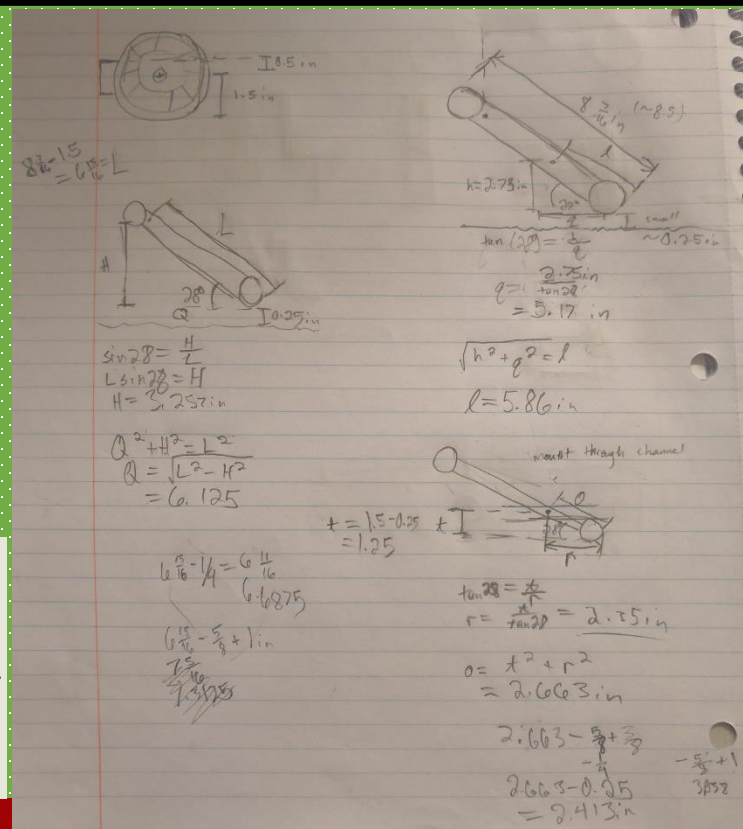 0.5 in
1.5 in
8 7/16 - 1.5
= 6 15/16 = L
L
H
28°
Q
0.25in
sin28 = H/L
L sin28 = H
H = 3.257in
Q² + H² = L²
Q = √L² - H²
= 6.125
6 15/16 - 1/4 = 6 11/16
6.6875
6 15/16 - 5/8 + 1in
7 5/16
7.3125
8 7/16 in (~8.5)
l
h = 2.75in
28°
q
small
~0.25in
tan(28) = h/q
q = 2.75in/tan28
= 5.17 in
√h² + q² = l
l = 5.86in
mount through channel
O
t = 1.5-0.25
= 1.25
t
28
r
tan28 = t/r
r = t/tan28 = 2.35in
o = t² + r²
= 2.663in
2.663 - 5/8 + 3/8
- 1/4
- 5/8 + 1
2.663-0.25
= 2.413in